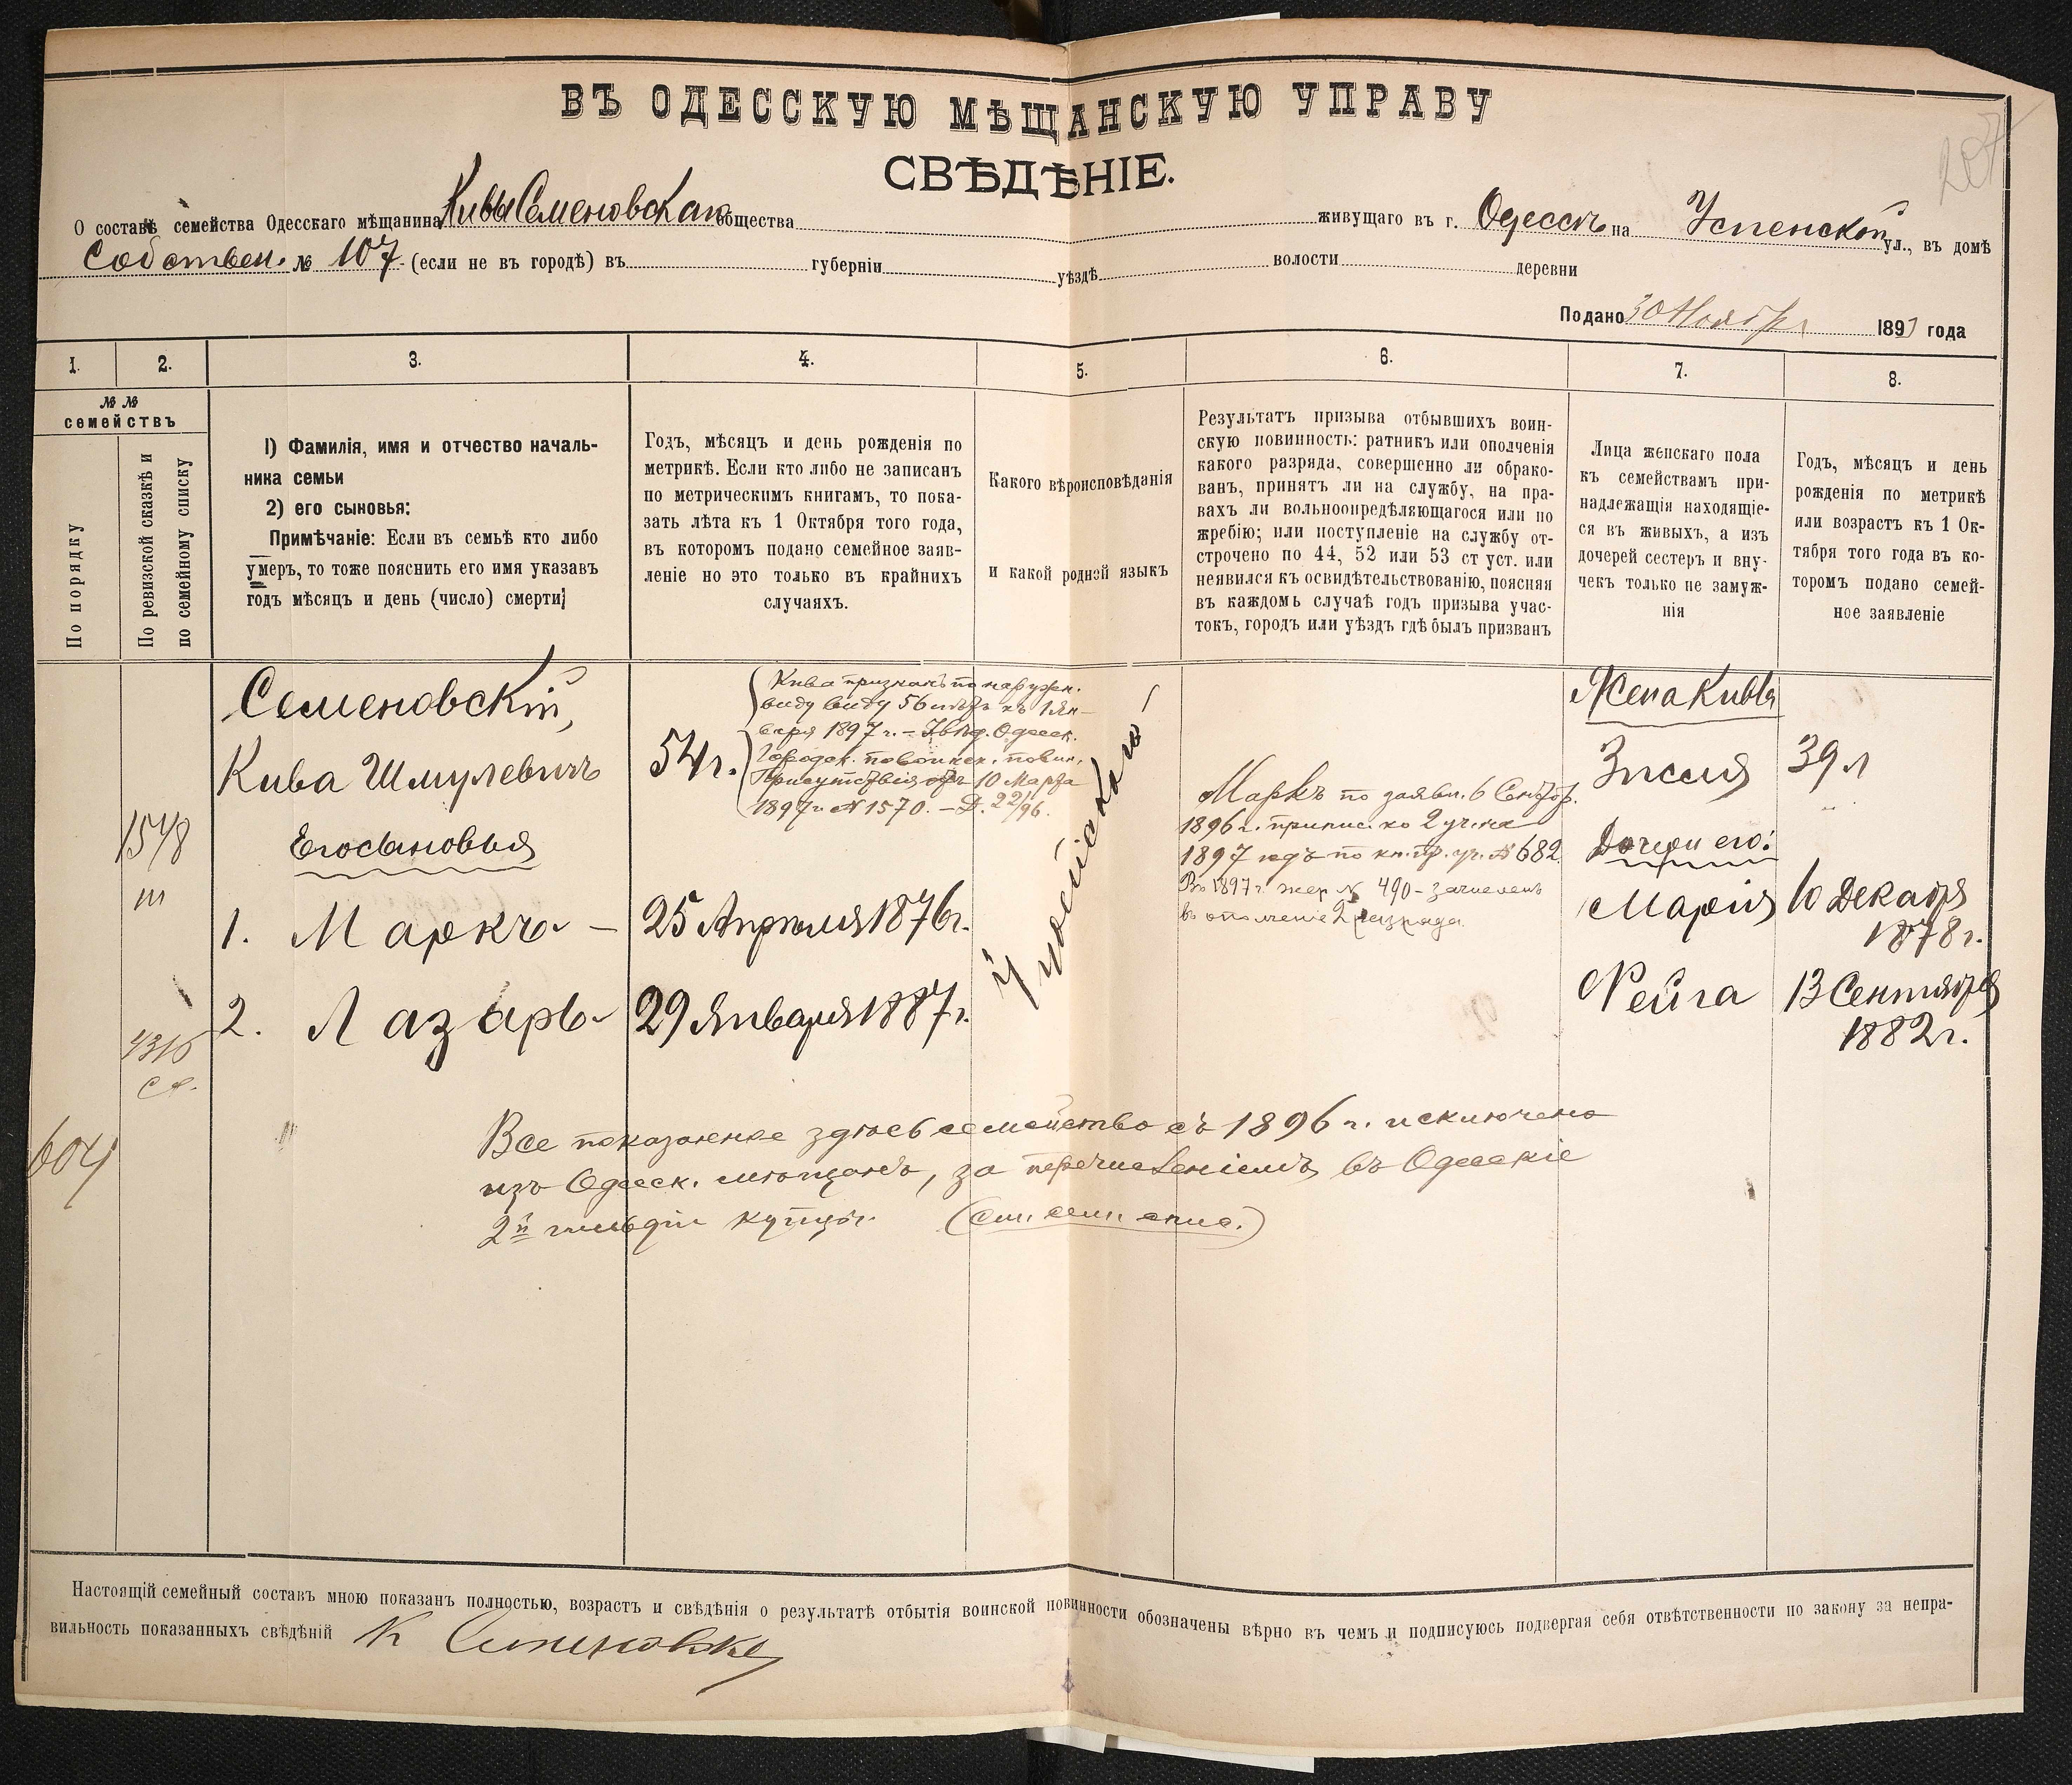 ВЪ ОДЕССКУЮ МѢЩАНСКУЮ УПРАВУ
СВѢДѢНІЕ.
207
О составѣ семейства Одесскаго мѣщанина Кивы Семеновскаго общества живущаго въ г. Одессѣ на Успенской ул., въ домѣ
Собствен. № 107 (если не въ городѣ) въ губерніи уѣздѣ волости деревни
Подано 30 Ноября 189 года
1. 2. 3. 4. 5. 6. 7. 8.
№ №
семействъ
По порядку
По ревизской сказкѣ и
по семейному списку
1) Фамилія, имя и отчество началь-
ника семьи
2) его сыновья:
Примѣчаніе: Если въ семьѣ кто либо
умеръ, то тоже пояснить его имя указавъ
годъ мѣсяцъ и день (число) смерти;
Годъ, мѣсяцъ и день рожденія по
метрикѣ. Если кто либо не записанъ
по метрическимъ книгамъ, то пока-
зать лѣта къ 1 Октября того года,
въ которомъ подано семейное заяв-
леніе но это только въ крайнихъ
случаяхъ.
Какого вѣроисповѣданія
и какой родной языкъ
Результатъ призыва отбывшихъ воин-
скую повинность: ратникъ или ополченія
какого разряда, совершенно ли обрако-
ванъ, принятъ ли на службу, на пра-
вахъ ли вольноопредѣляющагося или по
жребію; или поступленіе на службу от-
строчено по 44, 52 или 53 ст уст. или
неявился къ освидѣтельствованію, поясняя
въ каждомъ случаѣ годъ призыва учас-
токъ, городъ или уѣздъ гдѣ былъ призванъ
Лица женскаго пола
къ семействамъ при-
надлежащія находящіе-
ся въ живыхъ, а изъ
дочерей сестеръ и вну-
чекъ только не замуж-
нія
Годъ, мѣсяцъ и день
рожденія по метрикѣ
или возрастъ къ 1 Ок-
тября того года въ ко-
торомъ подано семей-
ное заявленіе
Семеновскій,
Кива Шмулевичъ
Его сыновья
1. Маркъ –
2. Лазарь
1548
604
54 г.
Кива признанъ по наружн.
виду виду 56 лѣтъ къ 1 Ян-
варя 1897 г. – Одесск.
Городск. по воинск. повин.
Присутствія отъ 10 Марта
1897 г. № 1570. – Д. 22/96.
25 Апрѣля 1876 г.
29 Января 1887 г.
Іудейскаго
Маркъ по заявл. 6 Сентяб.
1896 г. припис. ко 2 уч. на
1897 годъ по кн. пр. уч. № 682
Въ 1897 г. жер № 490 – зачисленъ
въ ополченіе 2 разряда.
Жена Кивы
Зисля
39 л
Дочери его:
Марія
10 Декабря
1878 г.
Рейга
13 Сентября
1882 г.
Все показанное здѣсь семейство съ 1896 г. исключено
изъ Одесск. мѣщанъ, за перечисленіемъ въ Одесскіе
2й гильдіи купцы. (См. сем. спис.)
Настоящій семейный составъ мною показанъ полностью, возрастъ и свѣдѣнія о результатѣ отбытія воинской повинности обозначены вѣрно въ чемъ и подписуюсь подвергая себя отвѣтственности по закону за непра-
вильность показанныхъ свѣдѣній К